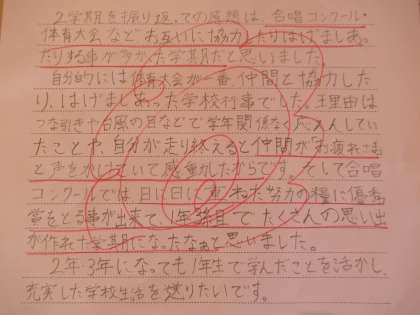 2学期を振り返っての感想は、合唱コンクール・
体育大会などお互いに協力したりはげましあっ
たりする事が多かった学期だと思いました。
自分的には体育大会が一番、仲間と協力した
り、はげましあった学校行事でした。理由は
つな引きや台風の目などで学年関係なく応えんしてい
たことや、自分が走り終えると仲間が「お疲れさま」
と声をかけていて感動したからです。そして合唱
コンクールでは日に日に重ねた努力の糧に優秀
賞をとる事が出来て、1年6組でたくさんの思い出
が作れた学期になったなぁと思いました。
2年・3年になっても1年生で学んだことを活かし、
充実した学校生活を送りたいです。